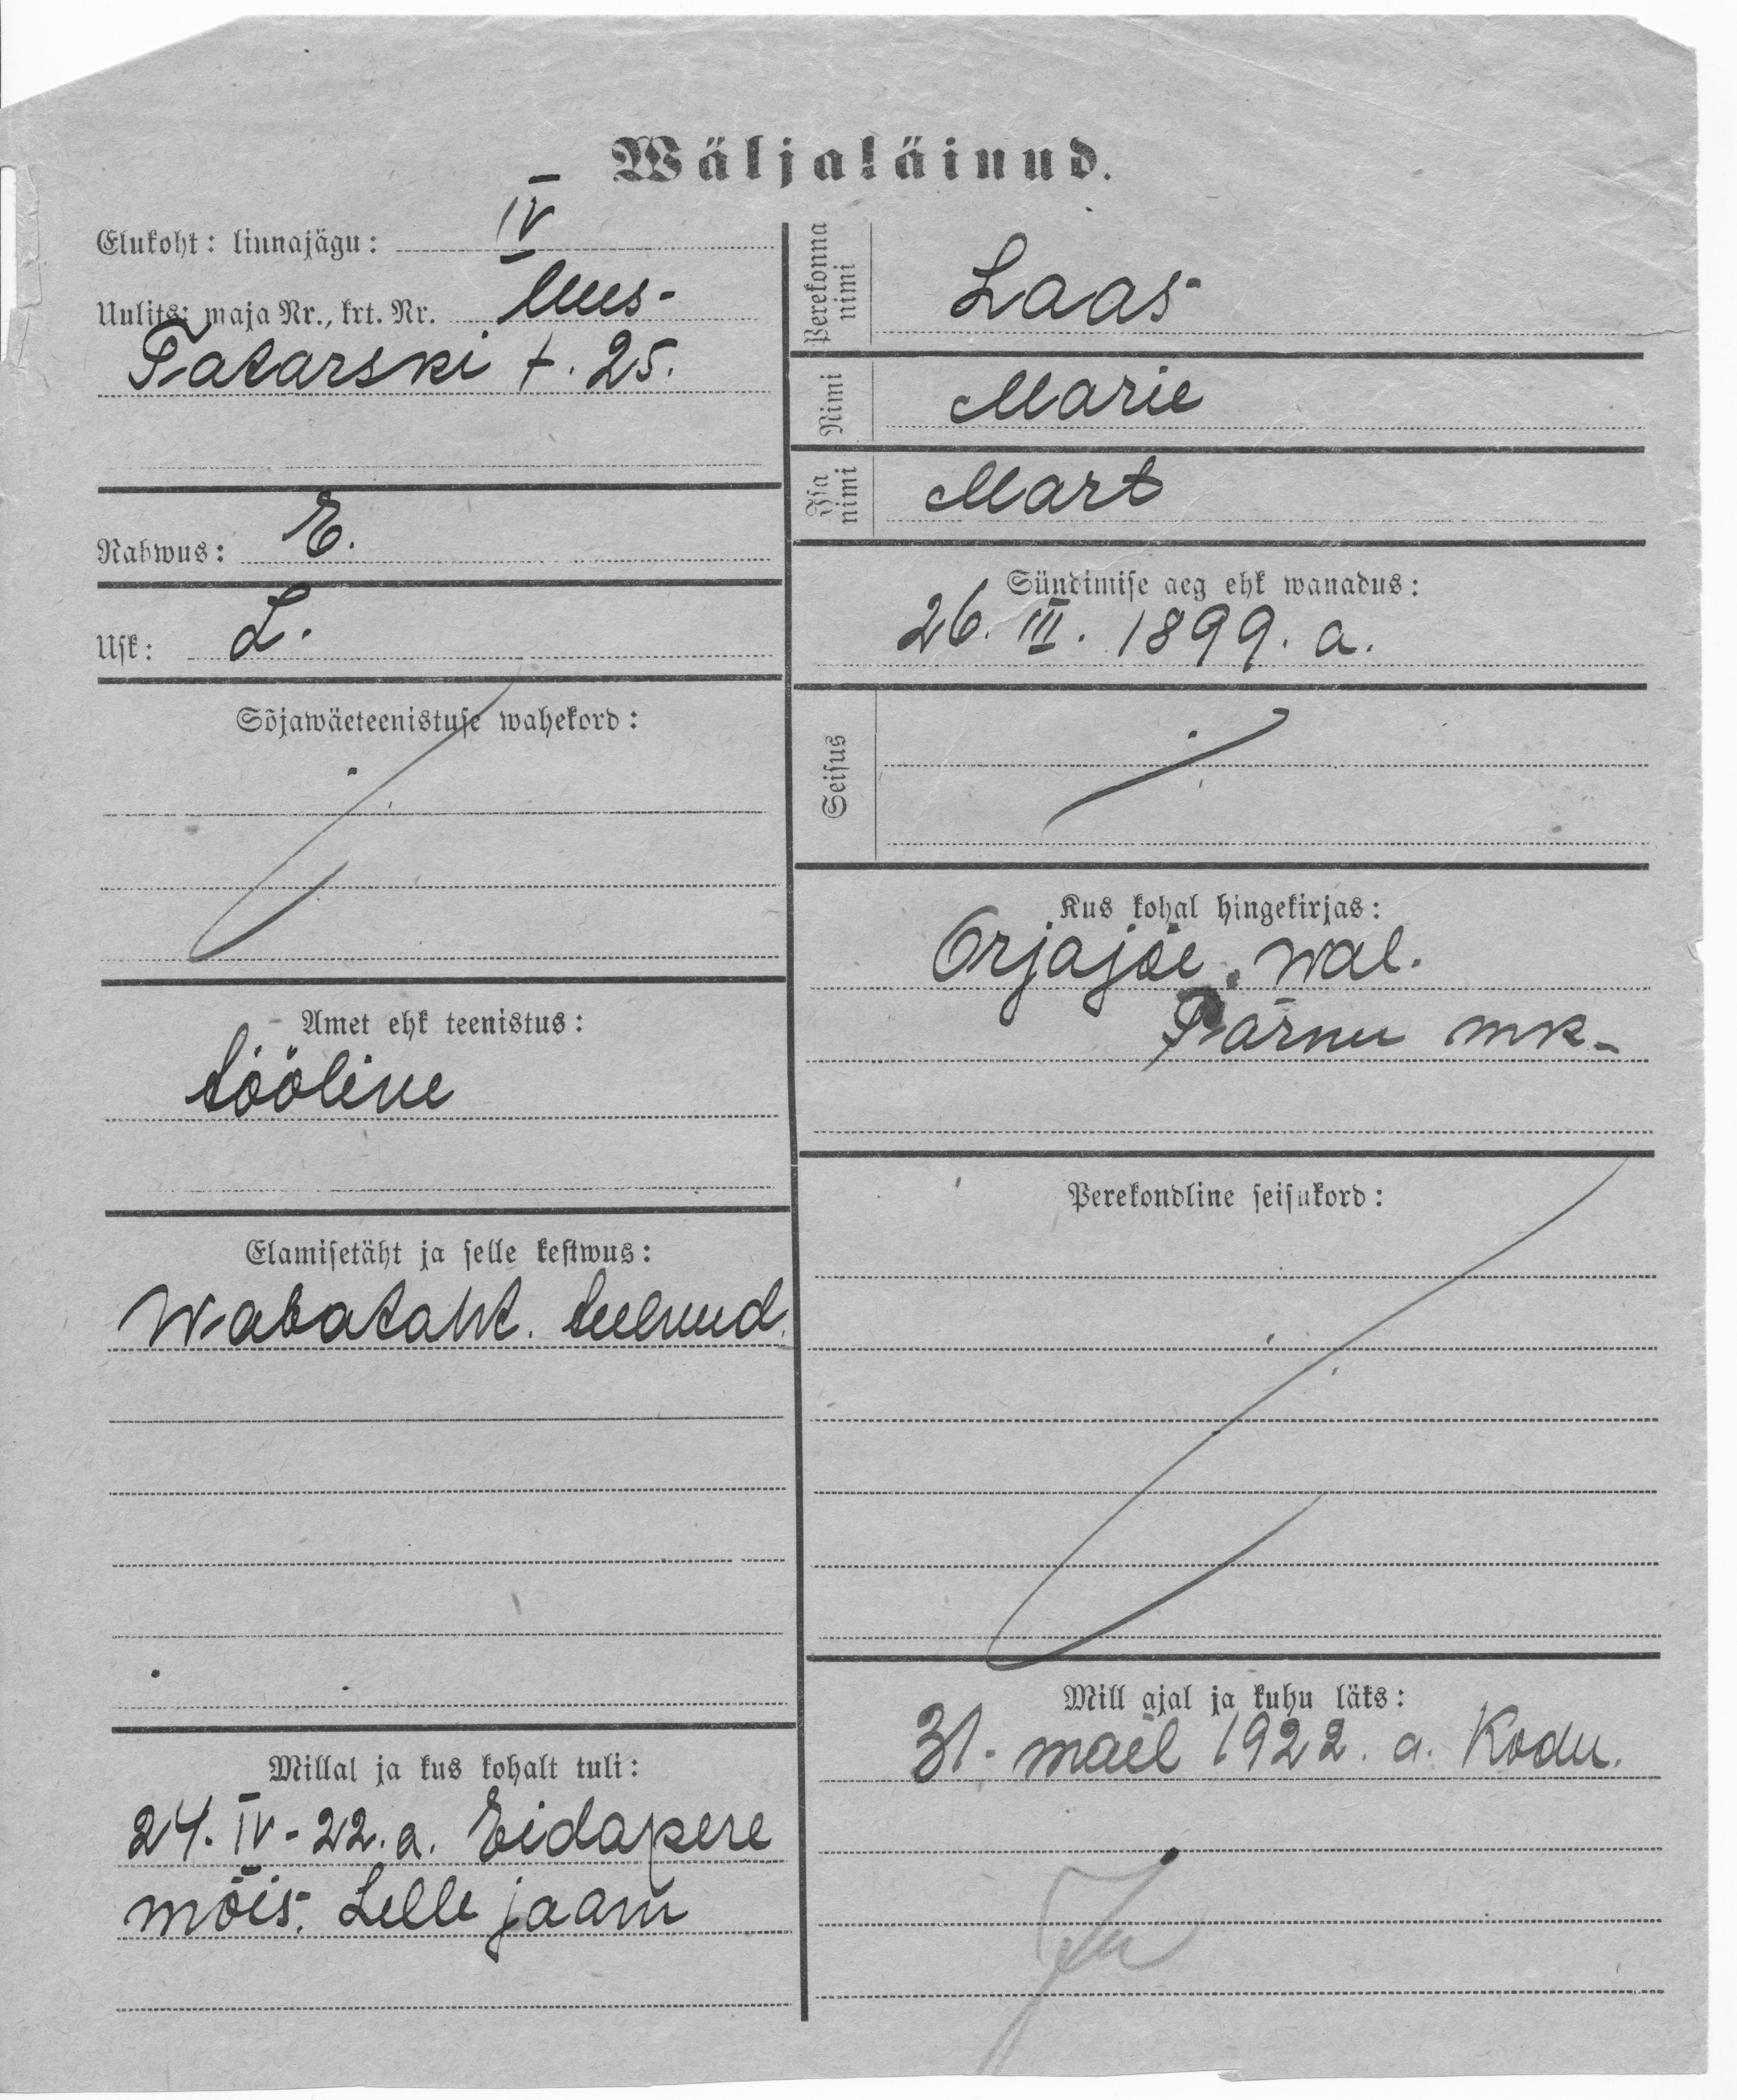 Wäljaläinud.
Elukoht: linnajägu: IV
Uulits: maja Nr., krt. Nr. Uus-
Tatarski t. 25.
Rahwus: E.
Usk: L.
Sõjawäeteenistuse wahekord:
Amet ehk teenistus:
tööline
Elamisetäht ja selle kestwus:
Wabataht. teelnud.
Millal ja kus kohalt tuli:
24. IV-22. a. Eidapere
mõis. Lelle jaam
Perekonna nimi
Laas
Nimi
Marie
Isa nimi
Mart
Sündimise aeg ehk wanadus:
26. III. 1899. a.
Seisus
Kus kohal hingekirjas:
Orjajõe wal.
Pärnu mk-
Perekondline seisukord:
Mill ajal ja kuhu läks:
31. mail 1922. a. Kodu.